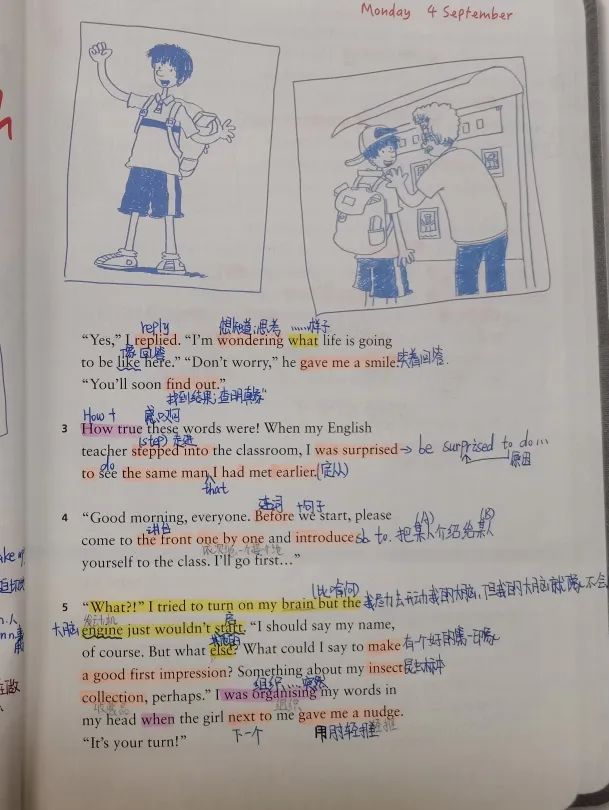 Monday 4 September
reply 想知道;思考 ……样子
“Yes,” I replied. “I’m wondering what life is going
像 回答
to be like here.” “Don’t worry,” he gave me a smile. 笑着回答.
“You’ll soon find out.”
找到结果;查明
How + 感叹词
3 How true these words were! When my English
(step) 走进
teacher stepped into the classroom, I was surprised → be surprised to do…
do 原因
to see the same man I had met earlier. (定从)
that
连词 +句子
4 “Good morning, everyone. Before we start, please
讲台 (A) (B)
come to the front one by one and introduce sb to. 把某人介绍给某人
yourself to the class. I’ll go first…”
(比喻句)
5 “What?!” I tried to turn on my brain but the
大脑 发动机
engine just wouldn’t start. “I should say my name,
of course. But what else? What could I say to make 有个好的第一印象
a good first impression? Something about my insect 昆虫标本
组织
collection, perhaps.” I was organising my words in
收藏品 组织
my head when the girl next to me gave me a nudge.
“It’s your turn!” 下一个 用肘轻推